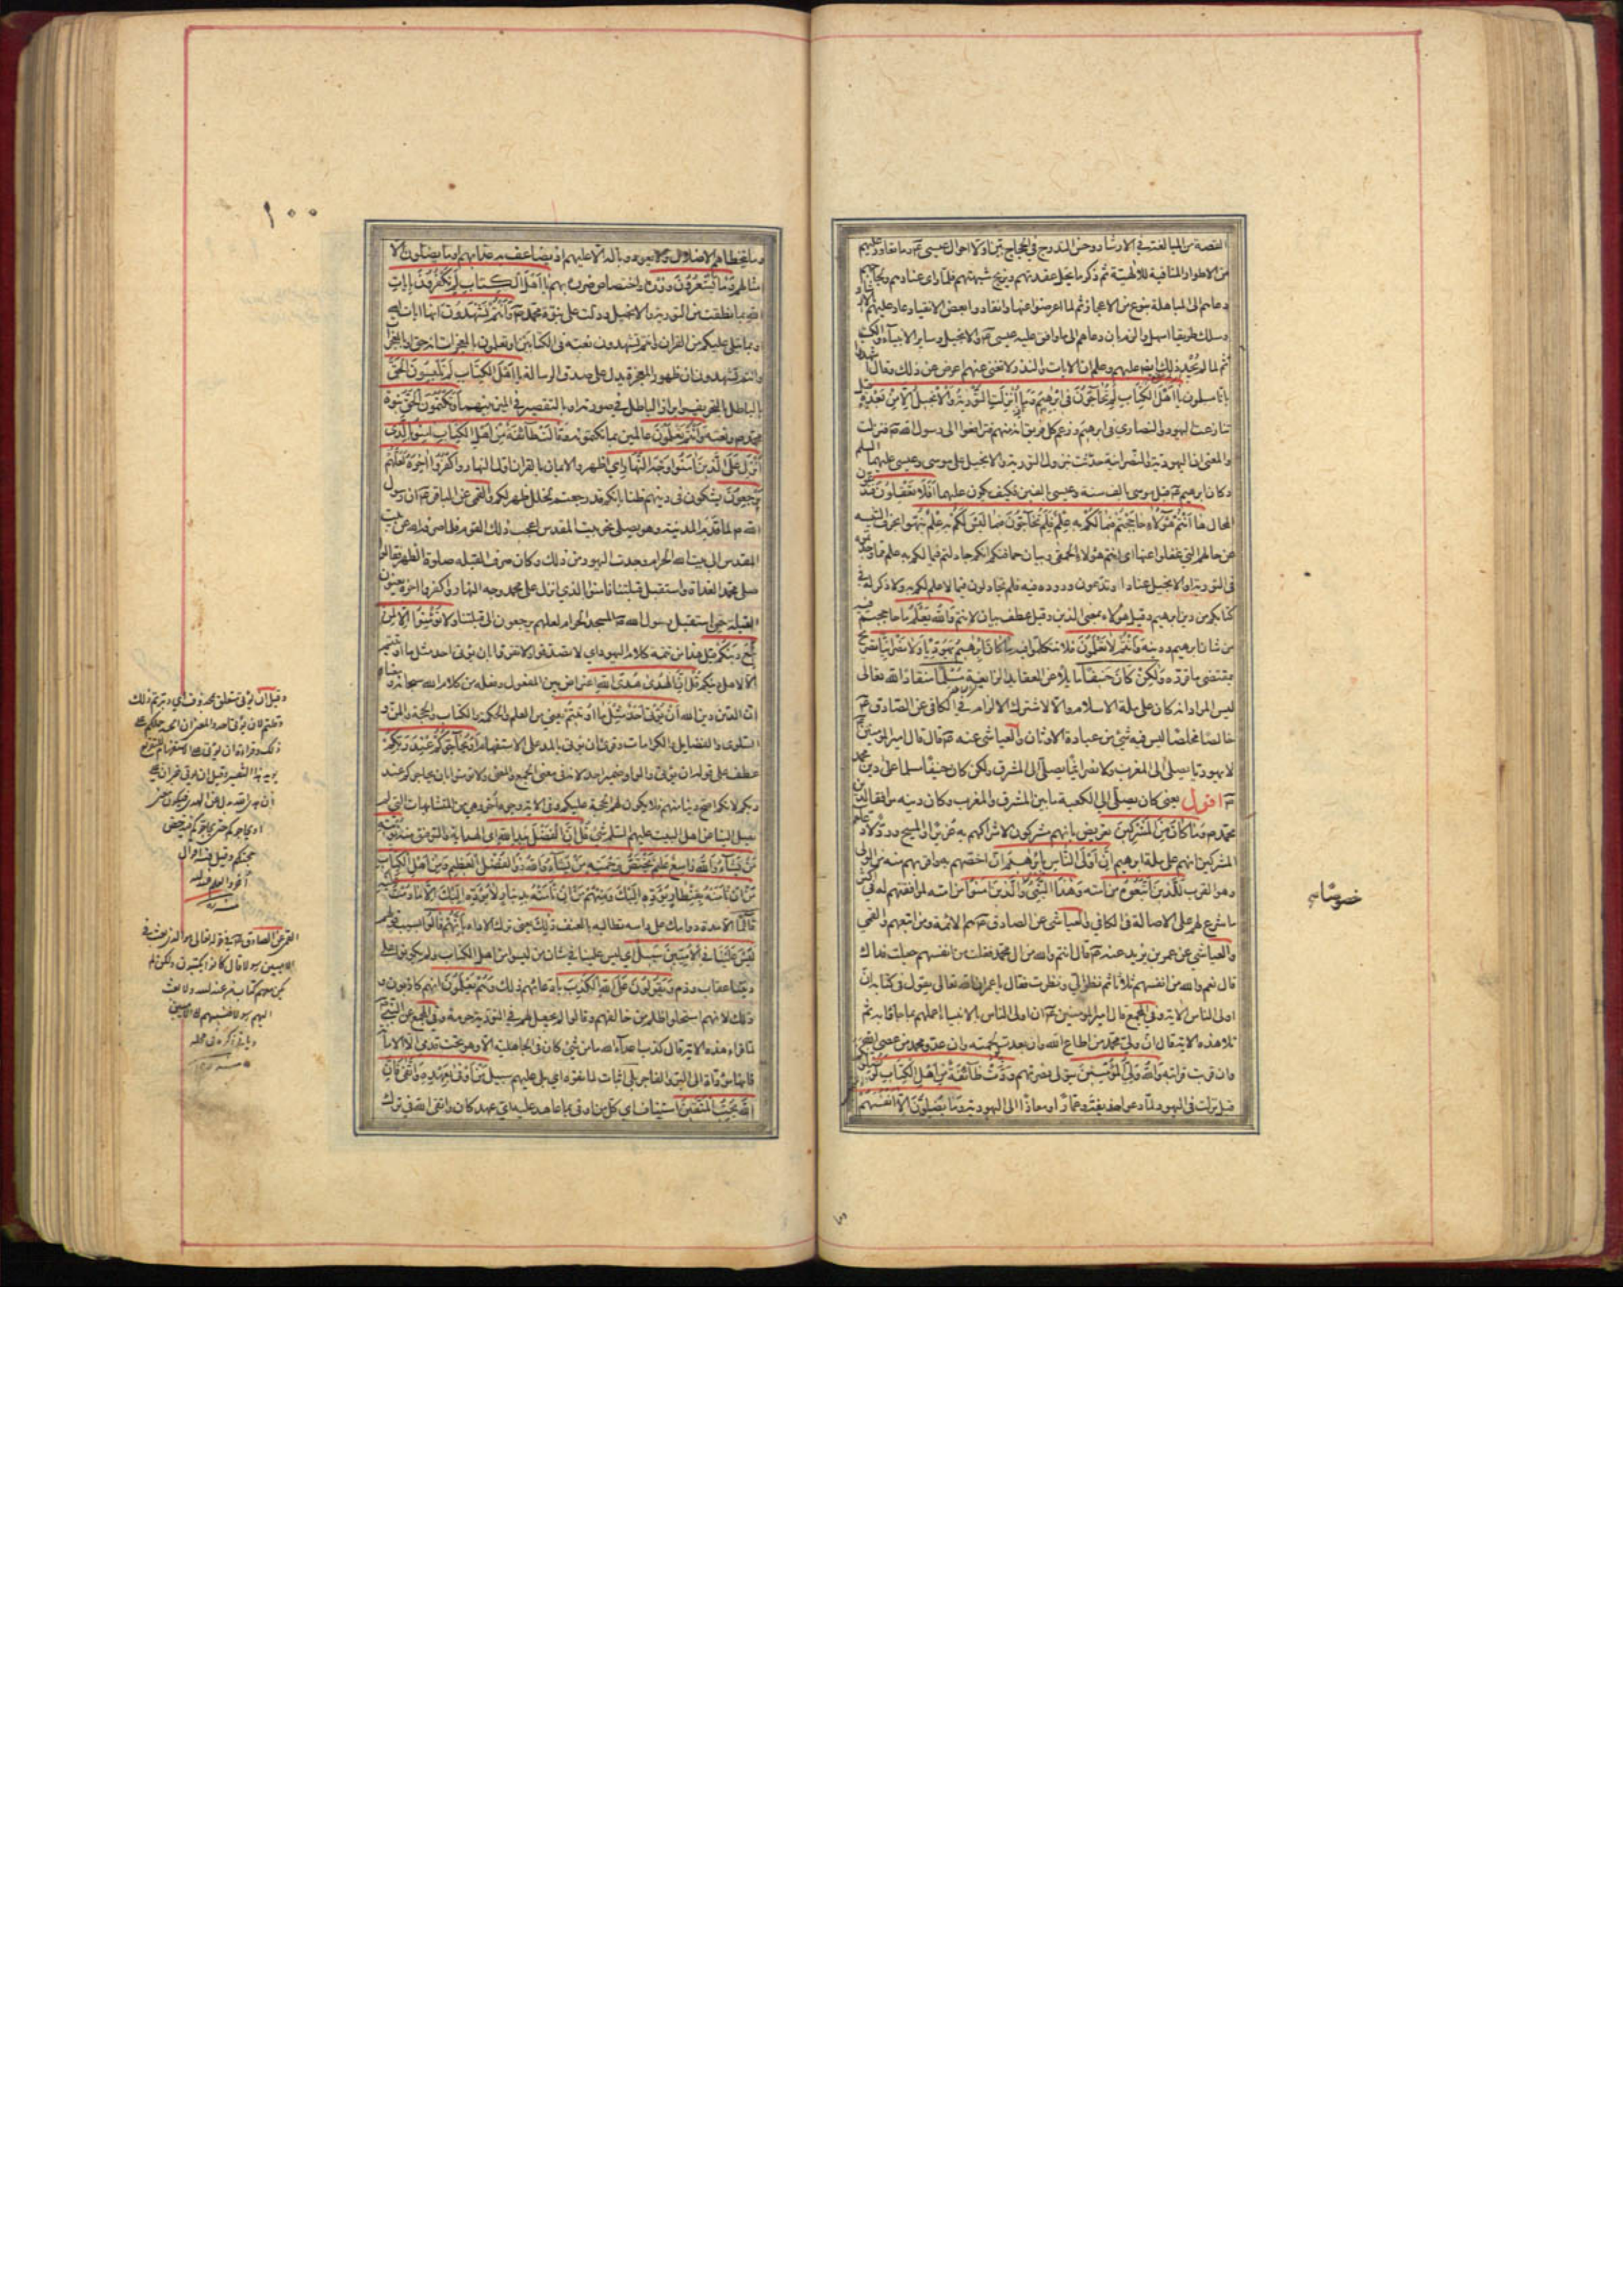 القصة من المبالغة في الارشاد وحسن التدرج في الحجاج بين اولا احوال عيسى وما تعاور عليهم
من الاطوار المنافية للالهية ثم ذكر ما يحل عقدتهم ويزيح شبهتهم فلما راى عنادهم ولجاجهم
دعاهم الى المباهلة بنوع من الاعجاز ثم لما اعرضوا عنها وانقادوا بعض الانقياد عاد عليهم
وسلك طريقا اسهل والزم بان دعاهم الى ما وافق عليه عيسى والانجيل وساير الانبياء والكتب
ثم لما لم يجد ذلك ايضا عليهم وعلم ان الايات والنذر لا تغني عنهم اعرض عن ذلك وقال اشهدوا
بانا مسلمون يا اهل الكتاب لم تحاجون في ابرهيم وما انزلت التورية والانجيل الا من بعده قيل
تنازعت اليهود والنصارى في ابرهيم وزعم كل فريق انه منهم فترافعوا الى رسول الله فنزلت
والمعنى ان اليهودية والنصرانية حدثت بنزول التورية والانجيل على موسى وعيسى عليهما السلم
وكان ابرهيم قبل موسى بالف سنة وعيسى بالفين فكيف يكون عليهما افلا تعقلون فتدعون
المحال ها انتم هؤلاء حاججتم فيما لكم به علم فلم تحاجون فيما ليس لكم به علم
عن حالهم التي غفلوا عنها اي انتم هؤلاء الحمقى وبيان حماقتكم انكم جادلتم فيما لكم به علم مما وجدتموه
في التورية والانجيل عنادا او تدعون وروده فيه فلم تجادلون فيما لا علم لكم به ولا ذكر له في
كتابكم من دين ابرهيم وقيل هؤلاء بمعنى الذين وقيل عطف بيان لانتم والله يعلم ما حاججتم فيه
من شان ابرهيم ودينه وانتم لا تعلمون فلا تتكلموا فيه ما كان ابرهيم يهوديا ولا نصرانيا تصريح
بمقتضى ما قرره ولكن كان حنيفا مائلا عن العقايد الزايغة مسلما منقادا لله تعالى
ليس المراد انه كان على ملة الاسلام والا لاشترك الالزام في الكافي عن الصادق
خالصا مخلصا ليس فيه شئ من عبادة الاوثان والعياشي عنه قال قال امير المؤمنين
لا يهوديا يصلي الى المغرب ولا نصرانيا يصلي الى المشرق ولكن كان حنيفا مسلما على دين محمد
اقول يعني كان يصلي الى الكعبة ما بين المشرق والمغرب وكان دينه موافقا لدين
محمد وما كان من المشركين تعريض بانهم مشركون لاشراكهم به عزيرا والمسيح ورد لادعاء
المشركين انهم على ملة ابرهيم ان اولى الناس بابرهيم ان اخصهم به واقربهم منه من الولي
وهو القرب للذين اتبعوه من امته وهذا النبي والذين امنوا من امته لموافقتهم له في اكثر
ما شرع لهم على الاصالة في الكافي والعياشي عن الصادق هم الائمة ومن اتبعهم والقمي
والعياشي عن عمر بن يزيد عنه قال انتم والله من ال محمد فقلت من انفسهم جعلت فداك
قال نعم والله من انفسهم ثلاثا ثم نظر الي ونظرت فقال يا عمر ان الله تعالى يقول في كتابه ان
اولى الناس الاية وفي المجمع قال امير المؤمنين ان اولى الناس بالانبياء اعملهم بما جاؤا به ثم
تلا هذه الاية قال ان ولي محمد من اطاع الله وان بعدت لحمته وان عدو محمد من عصى الله
وان قربت قرابته والله ولي المؤمنين يتولى نصرتهم ودت طائفة من اهل الكتاب لو يضلونكم
قيل نزلت في اليهود لما دعوا حذيفة وعمارا ومعاذا الى اليهودية وما يضلون الا انفسهم
خصوصا
١٠٠
وما يتخطاهم الاضلال ولا يعود وباله الا عليهم اذ يضاعف به عذابهم او ما يضلون الا
امثالهم وما يشعرون وزره واختصاص ضرره بهم يا اهل الكتاب لم تكفرون بايات
الله بما نطقت به التورية والانجيل ودلت على نبوة محمد وانتم تشهدون انها ايات الله
او بما يتلى عليكم من القران وانتم تشهدون نعته في الكتابين او تعلمون بالمعجزات انه حق
وانتم تشهدون ان ظهور المعجزة يدل على صدق الرسالة يا اهل الكتاب لم تلبسون الحق
بالباطل بالتحريف وابراز الباطل في صورته او بالتقصير في التميز بينهما وتكتمون الحق نبوة
محمد ونعته وانتم تعلمون عالمين بما تكتمونه وقالت طائفة من اهل الكتاب امنوا بالذي
انزل على الذين امنوا وجه النهار اي اظهروا الايمان بالقران اول النهار واكفروا اخره لعلهم
يرجعون يشكون في دينهم ظنا بانكم قد رجعتم لخلل ظهر لكم والقمي عن الباقر ان رسول
الله لما قدم المدينة وهو يصلي نحو بيت المقدس اعجب ذلك القوم فلما صرفه الله عن بيت
المقدس الى بيت الله الحرام وجدت اليهود من ذلك وكان صرف القبلة صلوة الظهر فقالوا
صلى محمد الغداة واستقبل قبلتنا فامنوا بالذي انزل على محمد وجه النهار واكفروا اخره يعنون
القبلة حين استقبل رسول الله المسجد الحرام لعلهم يرجعون الى قبلتنا ولا تؤمنوا الا لمن
تبع دينكم قيل هذا من تتمة كلام اليهود اي لا تصدقوا ولا تقروا بان يؤتى احد مثل ما اوتيتم
الا لاهل دينكم قل ان الهدى هدى الله اعتراض بين المفعول وفعله من كلام الله سبحانه
ان الدين دين الله ان يؤتى احد مثل ما اوتيتم يعني من العلم والحكمة والكتاب والحجة والمن و
السلوى والفضايل والكرامات وقرئ ان يؤتى بالمد على الاستفهام او يحاجوكم عند ربكم
عطف على قوله ان يؤتى والواو ضمير احد لانه في معنى الجمع والمعنى ولا تؤمنوا بان يحاجوكم عند
ربكم لانكم اصح دينا منهم فلا يكون لهم الحجة عليكم وفي الاية وجوه اخر وهي من المتشابهات التي لم
يصل الينا عن اهل البيت عليهم السلم شئ قل ان الفضل بيد الله اي الهداية والتوفيق منه يؤتيه
من يشاء والله واسع عليم يختص برحمته من يشاء والله ذو الفضل العظيم ومن اهل الكتاب
من ان تامنه بقنطار يؤده اليك ومنهم من ان تامنه بدينار لا يؤده اليك الا ما دمت عليه
قائما الا مدة دوامك على راسه تطالبه بالعنف ذلك يعني ترك الاداء بانهم قالوا بسبب قولهم
ليس علينا في الاميين سبيل اي ليس علينا في شان من ليسوا من اهل الكتاب ولم يكن على
ديننا عقاب وذم ويقولون على الله الكذب بادعائهم ذلك وهم يعلمون انهم كاذبون و
ذلك لانهم استحلوا ظلم من خالفهم وقالوا لم يجعل لهم في التورية حرمة وفي المجمع عن النبي
لما قرأ هذه الاية قال كذب اعداء الله ما من شئ كان في الجاهلية الا وهو تحت قدمي الا الامانة
فانها مؤداة الى البر والفاجر بلى اثبات لما نفوه اي بلى عليهم سبيل من اوفى بعهده واتقى فان
الله يحب المتقين استيناف اي كل من اوفى بما عاهد عليه اي عهد كان واتقى الله في ترك
وقيل ان يؤتى متعلق بمحذوف اي دبرتم ذلك
وقلتم لان يؤتى احد والمعنى ان الحسد حملكم على
ان
او يحاجوكم حتى يحاجوكم
حجتكم وقيل فيه اقوال
اخر والعلم عند الله
منه
القمي عن الصادق في قوله تعالى هو الذي بعث في
الاميين رسولا قال كانوا يكتبون ولكن لم
يكن معهم كتاب من عند الله ولا بعث
اليهم رسولا فنسبهم الى الاميين
منه